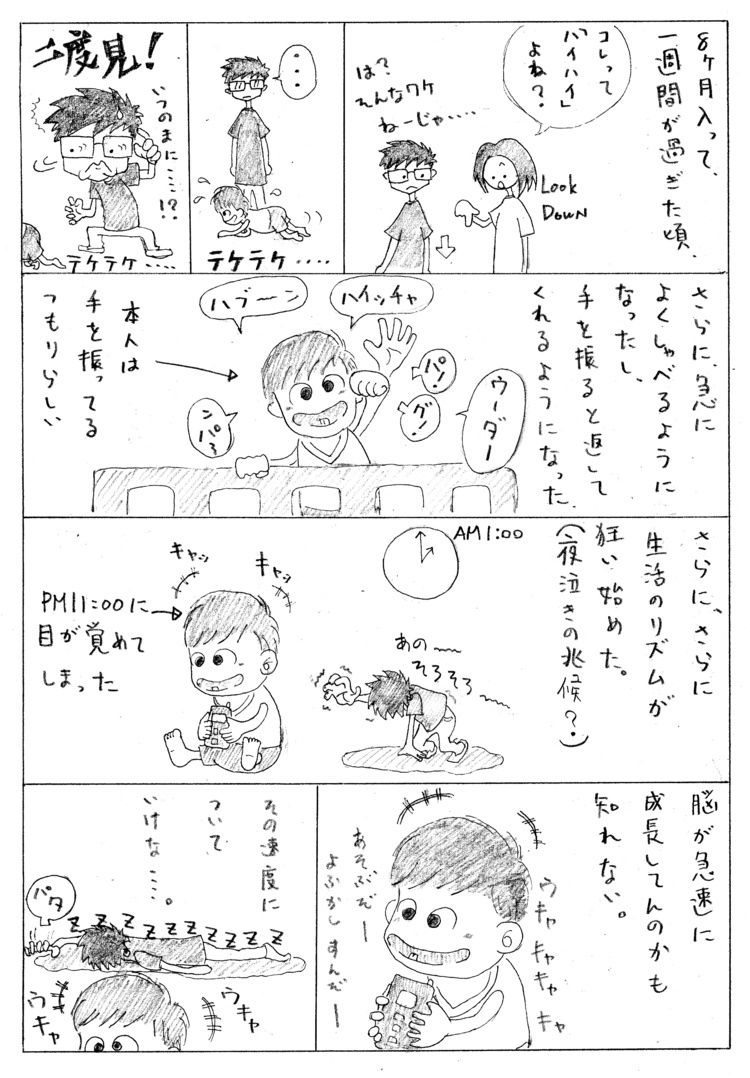 8ヶ月入って、
一週間が過ぎた頃、
コレって
「ハイハイ」
よね?
Look
Down
は?
そんなワケ
ねーじゃ・・・・
・・・
テケテケ・・・・
二度見!
いつのまに・・・・!?
テケテケ・・・・
さらに、急に
よくしゃべるように
なったし、
手を振ると返して
くれるようになった。
ハイッチャ
ハブーン
パ!
グ!
ウーダー
ンパろ
本人は
手を振ってる
つもりらしい
さらに、さらに
生活のリズムが
狂い始めた。
(夜泣きの兆候?)
AM1:00
あの〜
そろそろ〜
キャッ
キャッ
PM11:00に
目が覚めて
しまった
脳が急速に
成長してんのかも
知れない。
ウキャキャキャキャ
あそぶだー
よふかしすんだー
その速度に
ついて
いけな・・・・。
パタ
ZZZZZZZZZZ
ウキャ
ウキャ